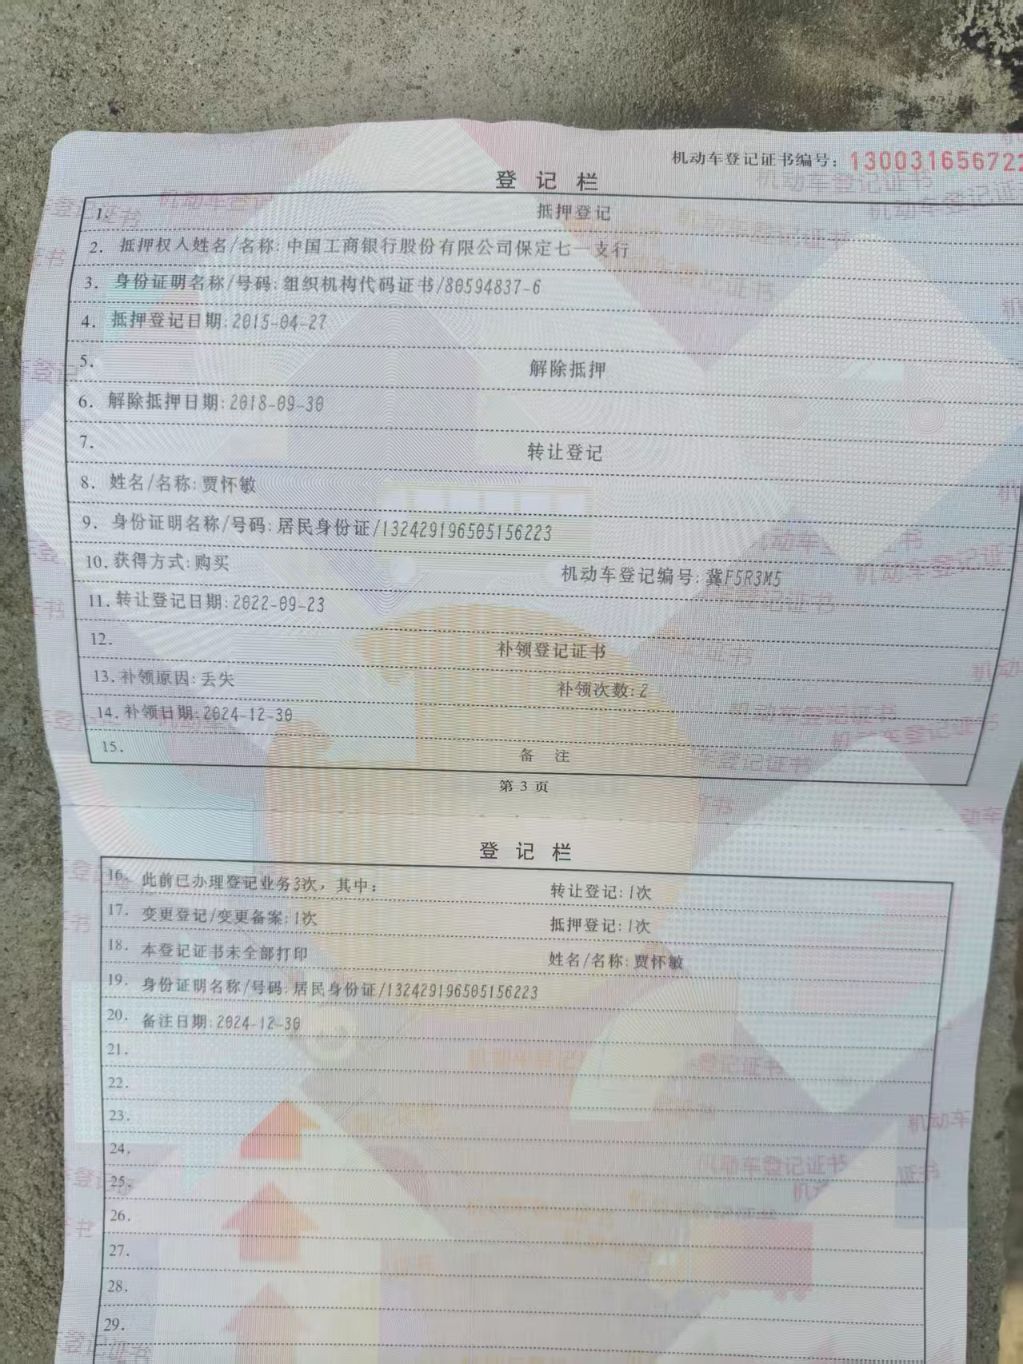 机动车登记证书编号：13003165672
登记栏
1. 抵押登记
2. 抵押权人姓名/名称:中国工商银行股份有限公司保定七一支行
3. 身份证明名称/号码:组织机构代码证书/80594837-6
4. 抵押登记日期:2015-04-27
5. 解除抵押
6. 解除抵押日期:2018-09-30
7. 转让登记
8. 姓名/名称:贾怀敏
9. 身份证明名称/号码:居民身份证/132429196505156223
10. 获得方式:购买 机动车登记编号:冀F5R3M5
11. 转让登记日期:2022-09-23
12. 补领登记证书
13. 补领原因:丢失 补领次数:2
14. 补领日期:2024-12-30
15. 备注
第 3 页
登记栏
16. 此前已办理登记业务3次，其中： 转让登记:1次
17. 变更登记/变更备案:1次 抵押登记:1次
18. 本登记证书未全部打印 姓名/名称:贾怀敏
19. 身份证明名称/号码:居民身份证/132429196505156223
20. 备注日期:2024-12-30
21.
22.
23.
24.
25.
26.
27.
28.
29.